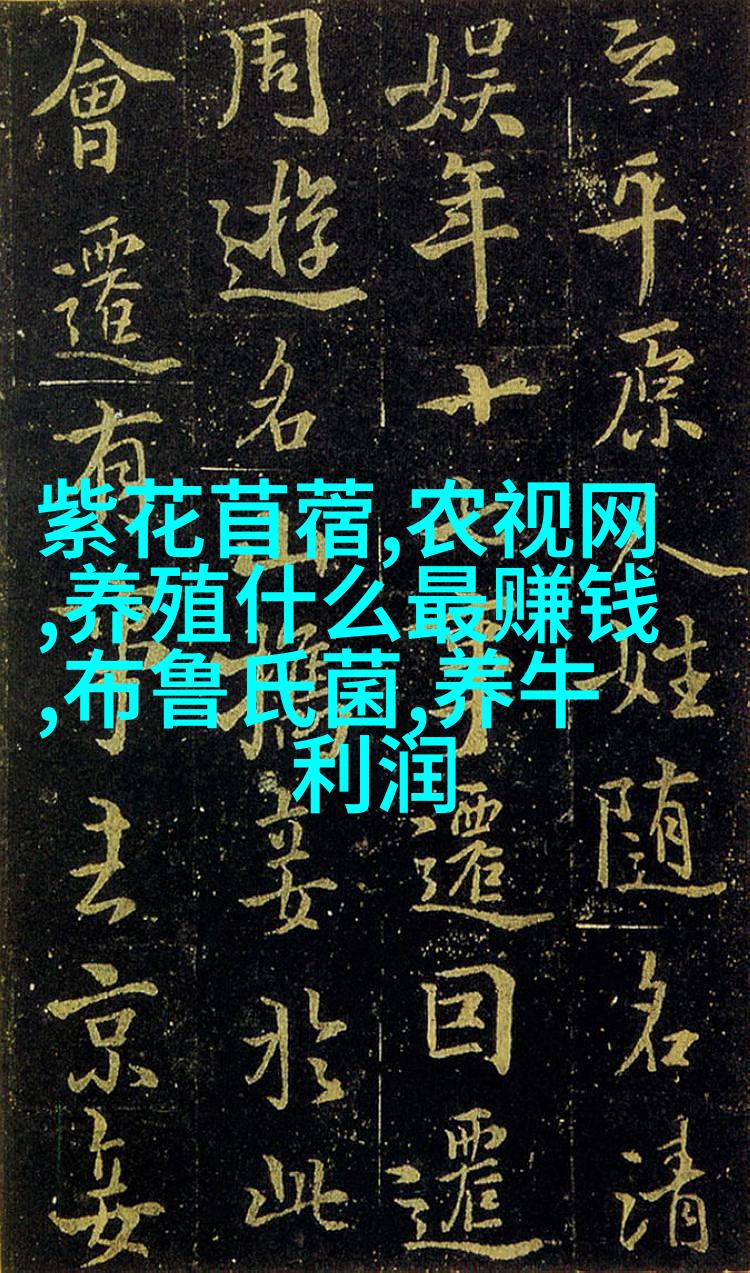 紫花苜蓿,农视网
,养殖什么最赚钱
,布鲁氏菌,养牛
利润
之平原人姓随名清
娱年十遷回遷
周遊名山携妾於此
會遷有京妾